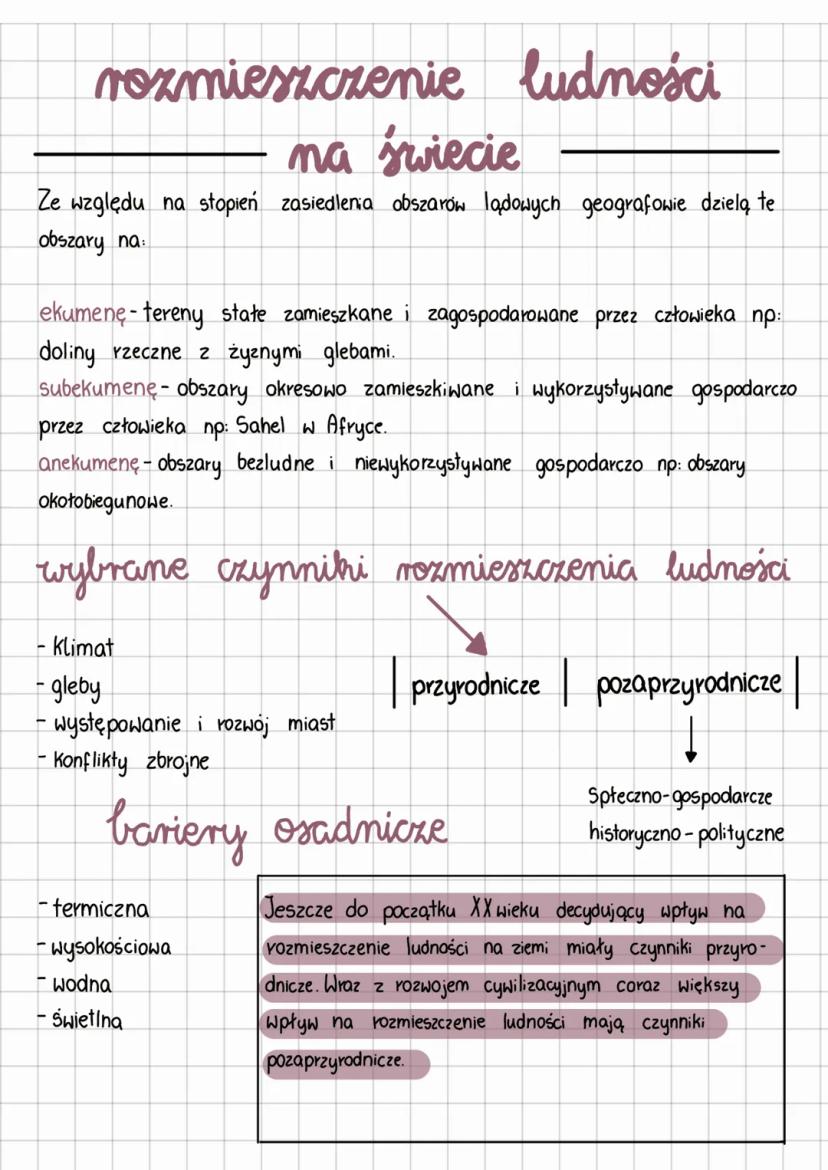 rozmieszczenie ludności
na świecie
Ze względu na stopień zasiedlenia obszarów lądowych geografowie dzielą te
obszary na:
ekumenę - tereny stałe zamieszkane i zagospodarowane przez człowieka np:
doliny rzeczne z żyznymi glebami.
subekumenę - obszary okresowo zamieszkiwane i wykorzystywane gospodarczo
przez człowieka np: Sahel w Afryce.
anekumenę - obszary bezludne i niewykorzystywane gospodarczo np: obszary
okołobiegunowe.
wybrane czynniki rozmieszczenia ludności
- klimat
- gleby
- występowanie i rozwój miast
- konflikty zbrojne
przyrodnicze
pozaprzyrodnicze
Spłeczno-gospodarcze
historyczno - polityczne
bariery osadnicze
- termiczna
- wysokościowa
- wodna
- świetlna
Jeszcze do początku XX wieku decydujący wpływ na
rozmieszczenie ludności na ziemi miały czynniki przyro-
dnicze. Wraz z rozwojem cywilizacyjnym coraz większy
wpływ na rozmieszczenie ludności mają czynniki
pozaprzyrodnicze.